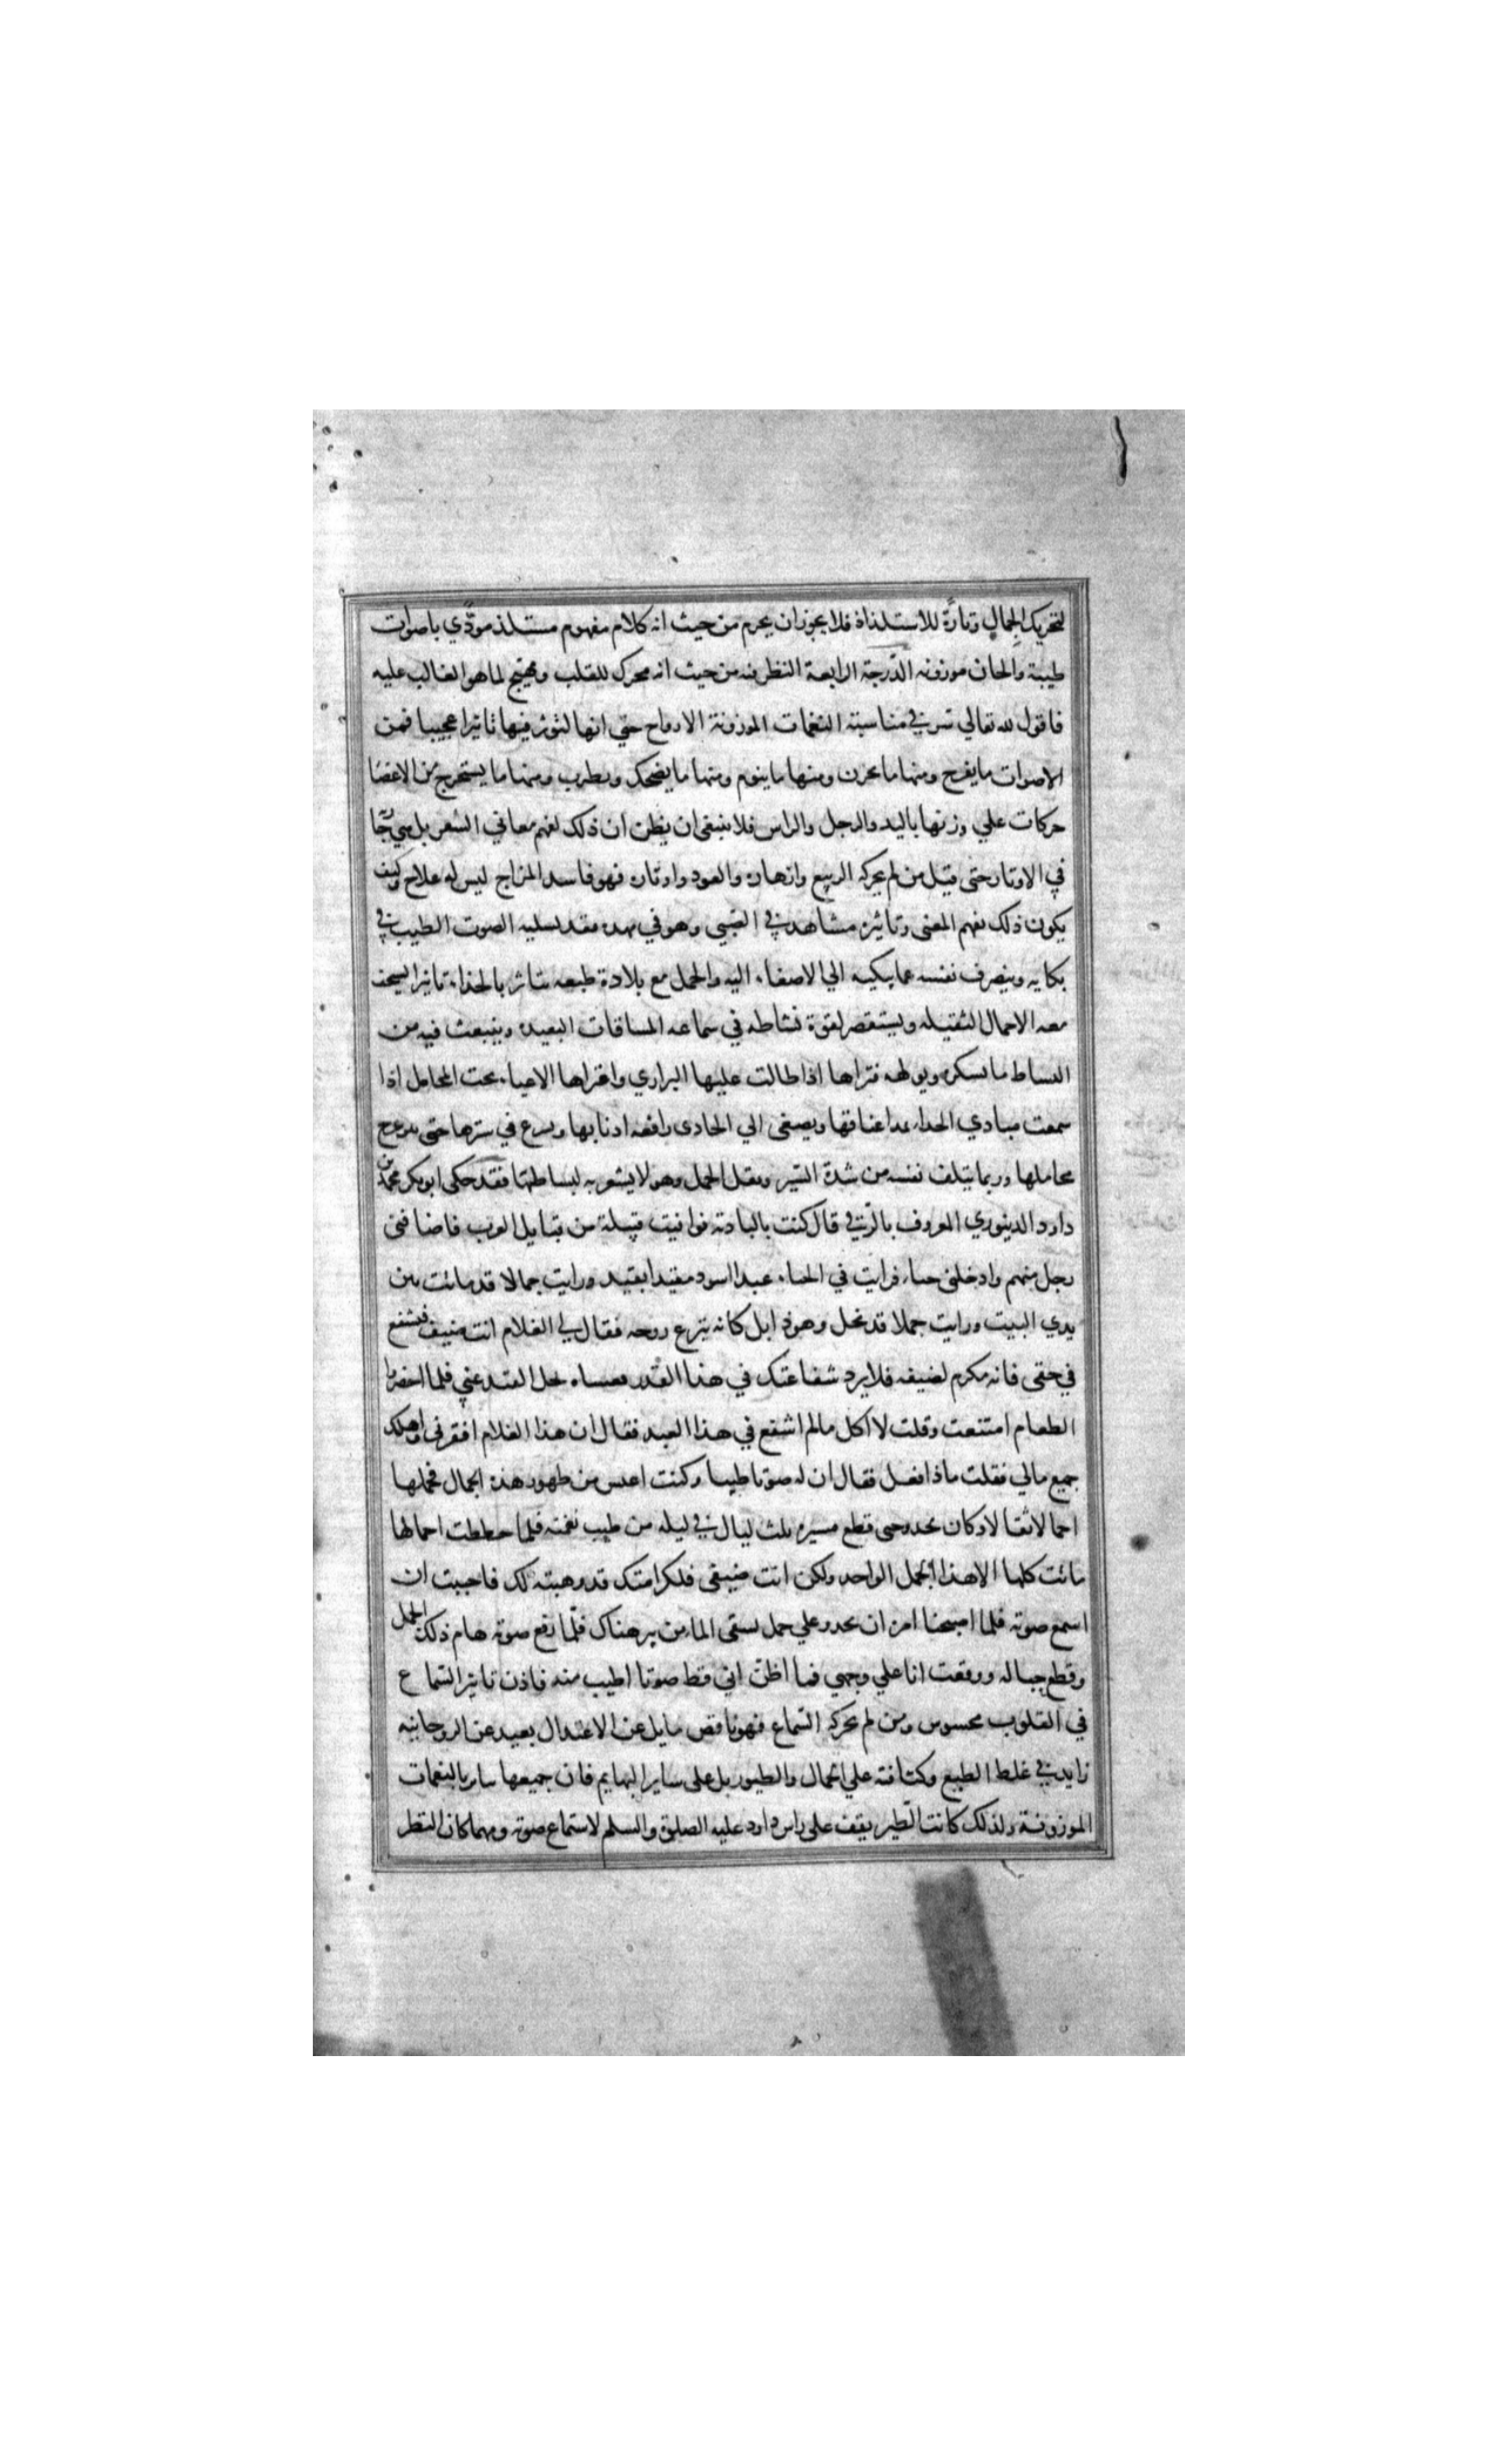 لتحريك الجمال وتارةً للاستلذاة فلا يجوز ان يحرم من حيث انه كلام مفهوم مستلذ مودّي باصوات
طيبة والحان موزونه الدّرجة الرابعة النظر فيه من حيث انه محرك للقلب ومهيّج لما هو الغالب عليه
فاقول لله تعالي سر في مناسبته النغمات الموزونة الارواح حتي انها لتوثر فيها تاثيرا عجيبا فمن
الاصوات ما يفرح ومنها ما يحزن ومنها ما ينوم ومنها ما يضحك ويطرب ومنها ما يستخرج من الاعضا
حركات علي وزنها باليد والرجل والراس فلا ينبغي ان يظن ان ذلك لفهم معاني الشعر بل هي
في الاوتار حتى قيل من لم يحركه الربيع وازهاره والعود واوتاره فهو فاسد المزاج ليس له علاج وكيف
يكون ذلك لفهم المعنى وتاثيره مشاهد في الصبي وهو في مهده فقد لسليه الصوت الطيب في
بكايه وينصرف نفسه عما يبكيه الي الاصغاء اليه والجمل مع بلادة طبعه يتاثر بالحداء تاثيرا يسحف
معه الاحمال الثقيله ويستقصر لقوة نشاطه في سماعه المسافات البعيده وينبعث فيه من
النساط ما يسكره ويولهه فتراها اذا طالت عليها البراري واعتراها الاعياء تحت المحامل اذا
سمعت مبادي الحداء تمد اعناقها ويصغى الي الحادى رافعه اذنابها ويسرع في سيرها حتى يتزعزع
محاملها وربما يتلف نفسه من شدة السّير وثقل الحمل وهو لا يشعر به لبساطتها فقد حكى ابو بكر محمد بن
داود الدينوري المعروف بالرّقي قال كنت بالبادته فوافيت قبيلة من قبايل العرب فاضافني
رجل منهم وادخلني خباء فرايت في الخباء عبدا اسود مقيدا بقيد ورايت جمالا قد ماتت بين
يدي البيت ورايت جملا قد نحل وهو ذابل كانه ينزع روحه فقال لي الغلام انت ضيف فتشفع
في حقى فانه مكرم لضيفه فلا يرد شفاعتك في هذا القدر فعساه يحل القيد عني فلما احضروا
الطعام امتنعت وقلت لا اكل مالم اشفع في هذا العبد فقال ان هذا الغلام افقرنى واهلك
جميع مالي فقلت ماذا فعل فقال ان له صوتا طيبا وكنت اعيس من ظهور هذه الجمال فحملها
احمالا ثقالا وكان يحدو حتى قطع مسيره ثلث ليال في ليله من طيب نغمته فلما حططت احمالها
ماتت كلها الا هذا الجمل الواحد ولكن انت ضيفى فلكرامتك قد وهبته لك فاحببت ان
اسمع صوته فلما اصبحنا امره ان يحدو علي جمل يسقى الماء من بير هناك فلمّا رفع صوته هام ذلك الجمل
وقطع حباله ووقعت انا علي وجهي فما اظن اني قط صوتا اطيب منه فاذن تاثير السّماع
في القلوب محسوس ومن لم يحركه السّماع فهو ناقص مايل عن الاعتدال بعيد عن الروحانيه
زايد في غلظ الطبع وكثافته علي الجمال والطيور بل على ساير البهايم فان جميعها يتاثر بالنغمات
الموزونة ولذلك كانت الطّير يقف على راس داود عليه الصلوة والسلم لاستماع صوته ومهما كان النظر